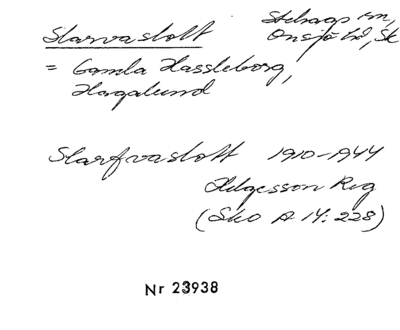 Slarvaslott
Stehags sn,
Onsjö hd, Sk
= Gamla Hassleborg,
Hagalund
Slarfvaslott 1910-1944
Helgesson Reg
(Sko A 14:228)
Nr 23938